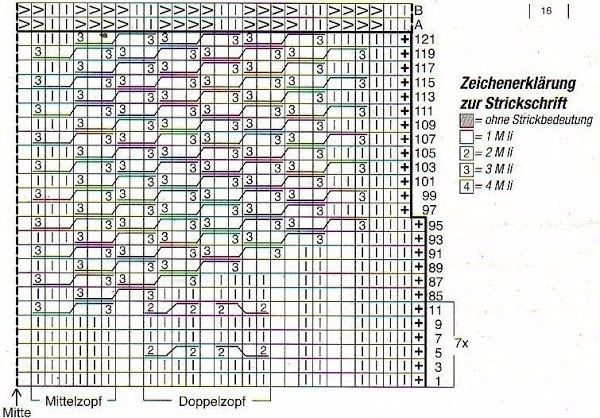 B
A
16
+ 121
+ 119
+ 117
+ 115
+ 113
+ 111
+ 109
+ 107
+ 105
+ 103
+ 101
+ 99
+ 97
+ 95
+ 93
+ 91
+ 89
+ 87
+ 85
3 3 2 2 2 2 + 11
+ 9
+ 7
2 2 2 2 + 5
+ 3
+ 1
7x
Mitte
Mittelzopf
Doppelzopf
Zeichenerklärung
zur Strickschrift
= ohne Strickbedeutung
= 1 M li
2 = 2 M li
3 = 3 M li
4 = 4 M li